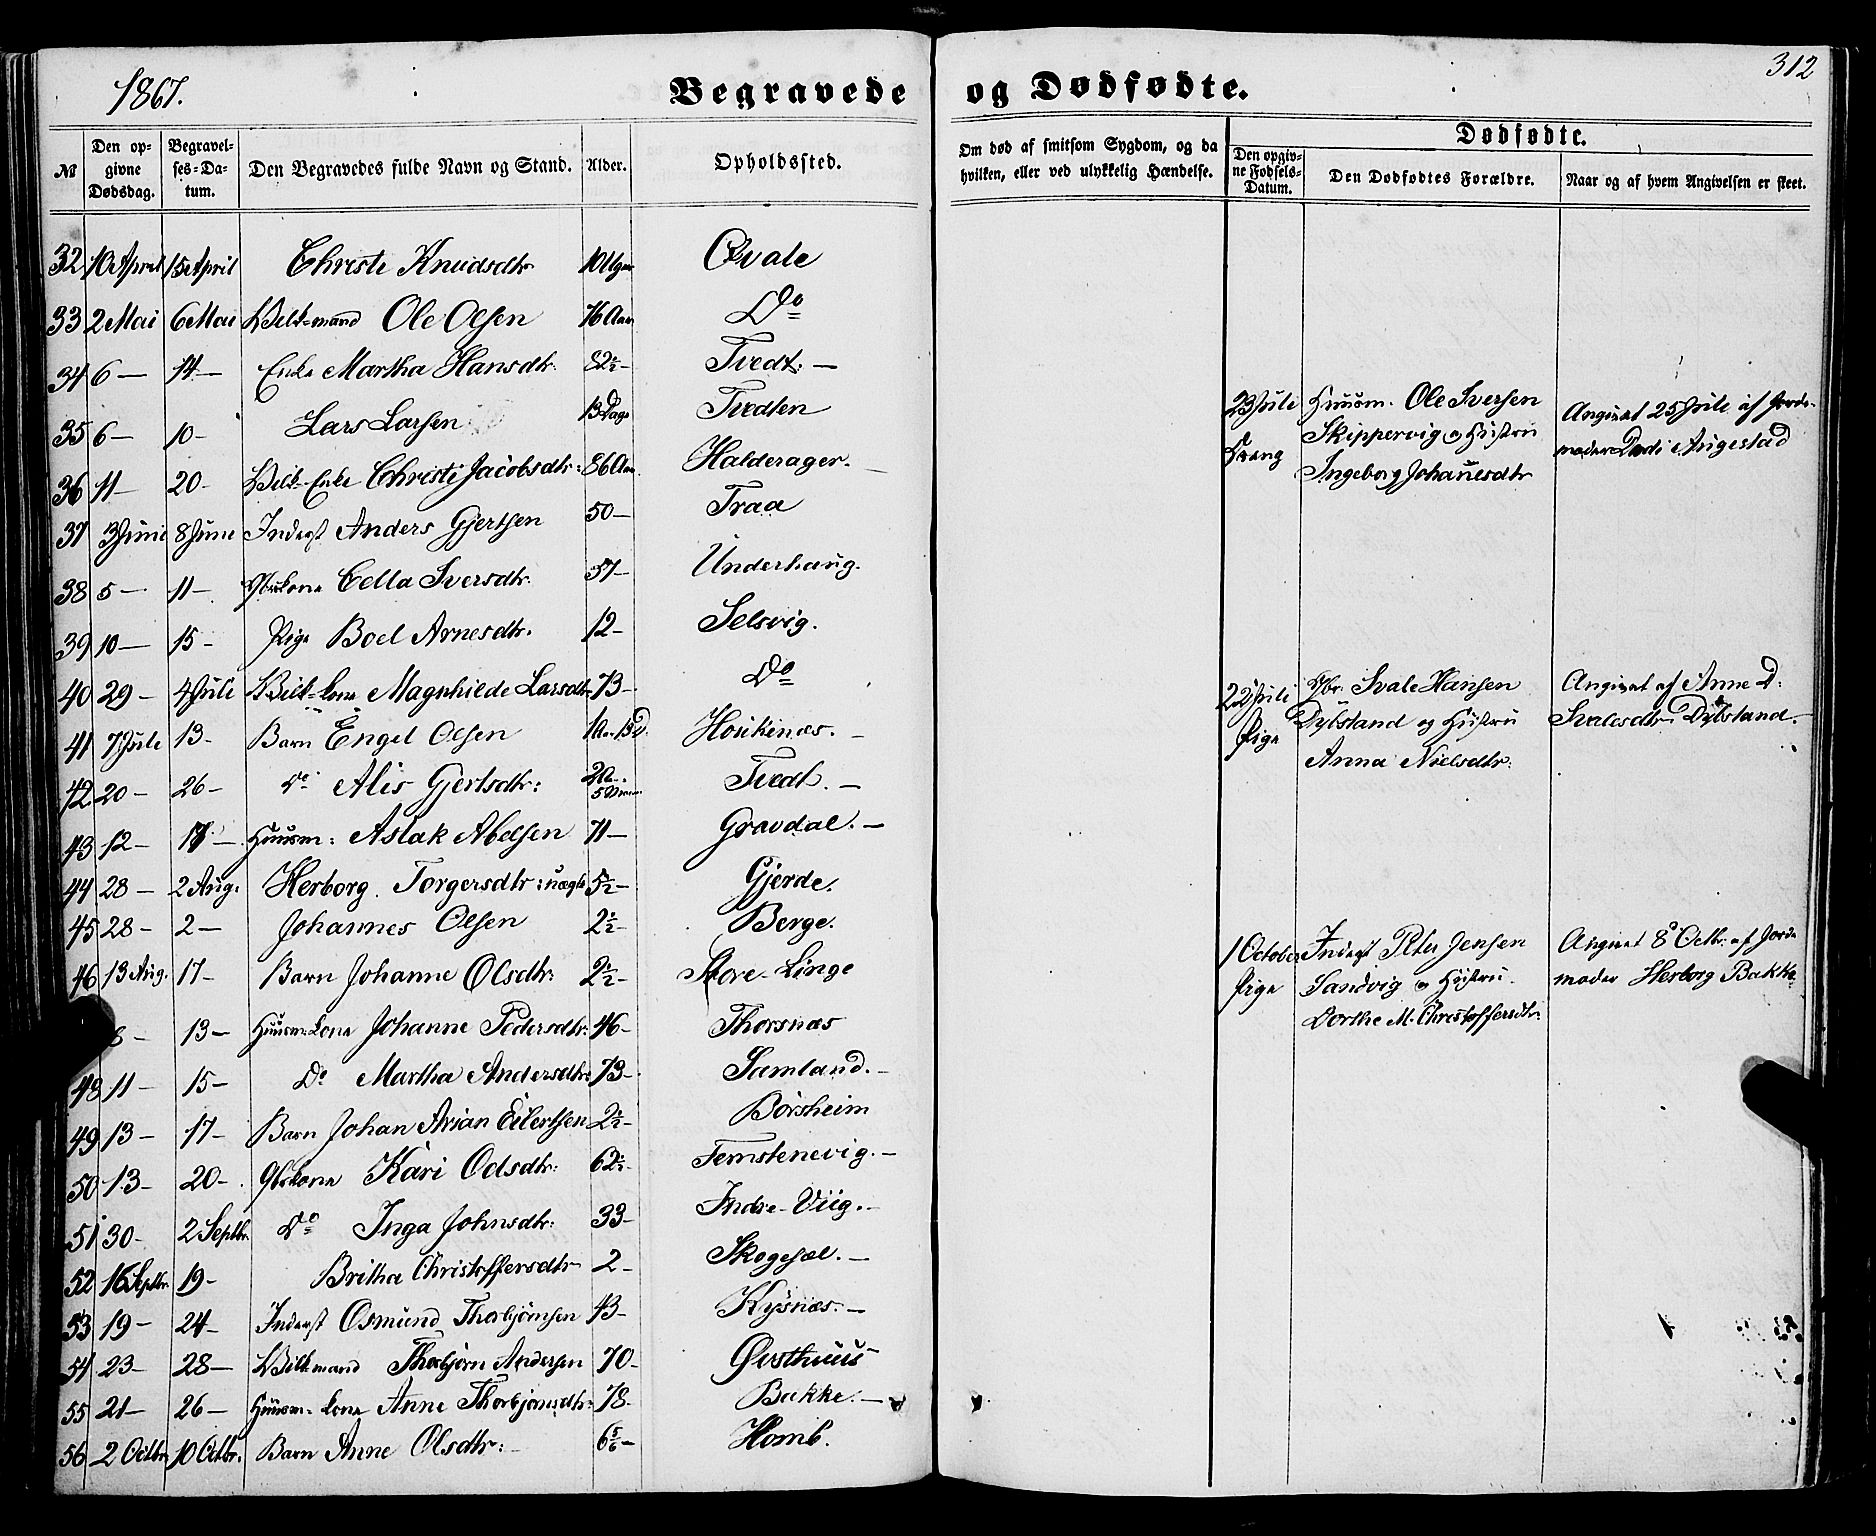 1867.
Begravede og Dødfødte.
312
№
Den opgivne Dødsdag.
Begravelses-Datum.
Den Begravedes fulde Navn og Stand.
Alder.
Opholdssted.
Om død af smitsom Sygdom, og da hvilken, eller ved ulykkelig Hændelse.
Dødfødte.
Den opgivne Fødsels-Datum.
Den Dødfødtes Forældre.
Naar og af hvem Angivelsen er skeet.
32 10 April 15 April Christi Knudsdtr Qvale
33 2 Mai 6 Mai Ole Olsen 76 Aar Do
34 6 — 14 — Enke Martha Hansdtr. 82½ — Tvedt. —
35 6 — 10 - Lars Larsen 13 Dage Tvedten
36 11 — 20 - Enke Christi Jacobsdtr: 86 Aar Halderager. —
37 3 Juni 8 Juni Inderst Anders Gjertsen 50 — Traa
38 5 — 11 — Gbrkone Cella Iversdtr. 37 — Underhaug.
39 10 — 15 - Pige Boel Arnesdtr. 12 - Selsvig.
40 29 - 4 Juli Kone Magnhilde Larsdtr 73 - Do
41 7 Juli 13 - Barn Engel Olsen Houkenæs. —
42 20 — 26 - do Alis Gjertsdtr: Tvedt. —
43 12 — 17 — Huusm: Aslak Abelsen 71 — Gravdal. —
44 28 — 2 Aug. Herborg Torgersdtr: uægte 5½ — Gjerde.
45 28 — 2 — Johannes Olsen 2½ — Berge.
46 13 Aug. 17 - Barn Johanne Olsdtr: 2½ — Store-Linge
8 - 13 — Huusm: Kone Johanne Pedersdtr: 46 - Thorsnæs
48 11 — 15 — Do Martha Andersdtr: 73 - Samland. —
49 13 — 17 — Barn Johan Arian Eilertsen 2½ — Børsheim
50 13 — 20 — Gbrkone Kari Odsdtr: 62½ - Femstenevig. —
51 30 - 2 Septbr. Do Inga Johnsdtr: 33 - Indre-Viig. —
52 16 Septbr. 19 - Britha Christoffersdtr 2 - Skogesæl. —
53 19 — 24 — Inderst Osmund Thorbjørnsen 43 - Kysnæs. —
54 23 — 28 — Thorbjørn Andersen 70 - Gjesthuus
55 21 — 26 — Huusm: Kone Anne Thorbjørnsdtr: 78 - Bakke. —
56 2 Octbr. 10 Octbr. Barn Anne Olsdtr: 6 5/6 — Homb.
23 Juli Dreng
Huusm. Ole Iversen
Skippervig og Hustru
Ingeborg Johannesdtr
Angivet 25 Juli af Jorde-
moder Dødi Augestad
22 Juli Pige
Gbr: Svale Hansen
Dybsland og Hustru
Anna Nielsdtr:
Angivet af Anne D:
Svalesdtr: Dybsland.
1 October Pige
Inderst Peter Jensen
Sandvig og Hustru
Dorthe M. Christoffersdtr:
Angivet 8 Octbr: af Jorde
moder Herborg Bakke